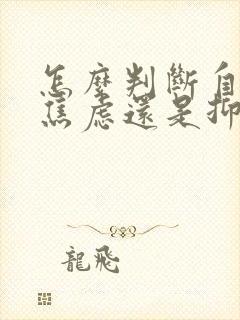 怎麼判斷自
焦慮還是抑
龍飛